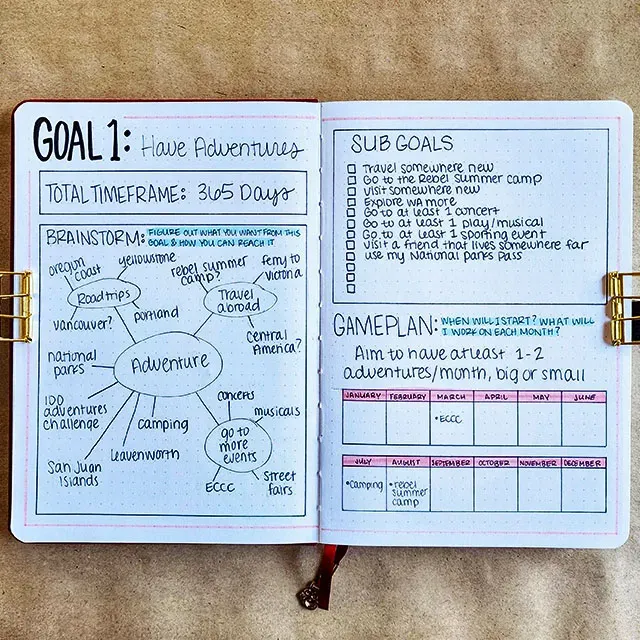 GOAL 1: Have Adventures
TOTAL TIMEFRAME: 365 Days
BRAINSTORM: FIGURE OUT WHAT YOU WANT FROM THIS
GOAL & HOW YOU CAN REACH IT
oregon
coast
yellowstone
Roadtrips
vancouver?
portland
rebel summer
camp?
ferry to
victoria
Travel
abroad
Central
America?
Adventure
national
parks
100
adventures
challenge
San Juan
Islands
leavenworth
camping
concerts
musicals
go to
more
events
ECCC
street
fairs
SUB GOALS
Travel somewhere new
Go to the Rebel Summer camp
Visit somewhere new
Explore WA more
Go to at least 1 concert
Go to at least 1 play/musical
Go to at least 1 sporting event
Visit a friend that lives somewhere far
use my National Parks Pass
GAMEPLAN: WHEN WILL I START? WHAT WILL
I WORK ON EACH MONTH?
Aim to have atleast 1-2
adventures/month, big or small
JANUARY FEBRUARY MARCH APRIL MAY JUNE
•ECCC
JULY AUGUST SEPTEMBER OCTOBER NOVEMBER DECEMBER
•camping •rebel
summer
camp